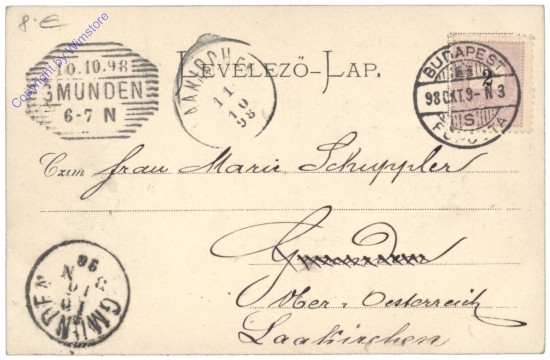 8.-€
Copyright by Wimstore
10.10.98
GMUNDEN
6-7 N
11
10
98
LEVELEZŐ-LAP.
BUDAPEST
98 OKT. 9- N 3
S
Czim Frau Marie Schuppler
Gmunden
Ober-Oesterreich
Laakirchen
GMUNDEN
98